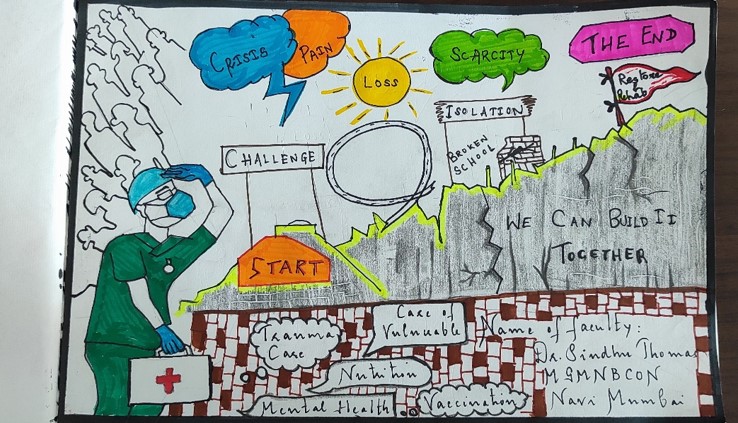 CRISIS
PAIN
LOSS
SCARCITY
THE END
Restore
Rehab
ISOLATION
BROKEN
SCHOOL
CHALLENGE
START
WE CAN BUILD IT
TOGETHER
Trauma
Care
Care of
Vulnuable
Nutrition
Mental Health
Vaccination
Name of faculty:
Dr. Sindhu Thomas
MGMNBCON
Navi Mumbai